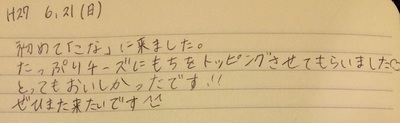 H27 6.21(日)
初めて「こな」に来ました。
たっぷりチーズにもちをトッピングさせてもらいました
とってもおいしかったです!!
ぜひまた来たいです